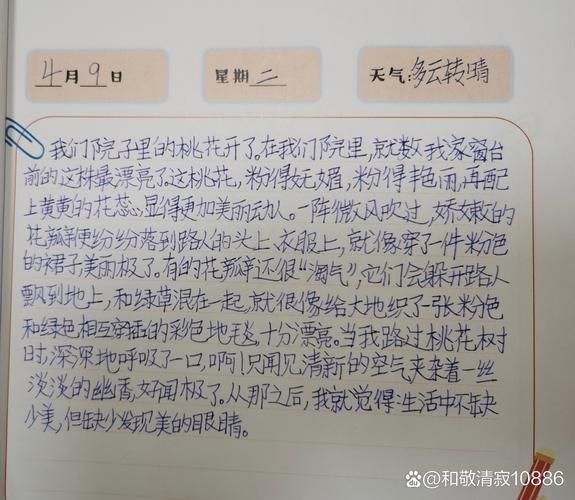 4月9日 星期二 天气:多云转晴
我们院子里的桃花开了。在我们院里,就数我家窗台
前的这株最漂亮了。这桃花,粉得妩媚,粉得艳丽,再配
上黄黄的花蕊,显得更加美丽动人。一阵微风吹过,娇嫩的
花瓣便纷纷落到路人的头上、衣服上,就像穿了一件粉色
的裙子,美丽极了。有的花瓣还很“淘气”,它们会躲开路人
飘到地上,和绿草混在一起,就很像给大地织了一张粉色
和绿色相互穿插的彩色地毯,十分漂亮。当我路过桃花树
时,深深地呼吸了一口,啊!只闻见清新的空气夹杂着一丝
淡淡的幽香,好闻极了。从那之后,我就觉得:生活中不缺
少美,但缺少发现美的眼睛。
@和敬清寂10886